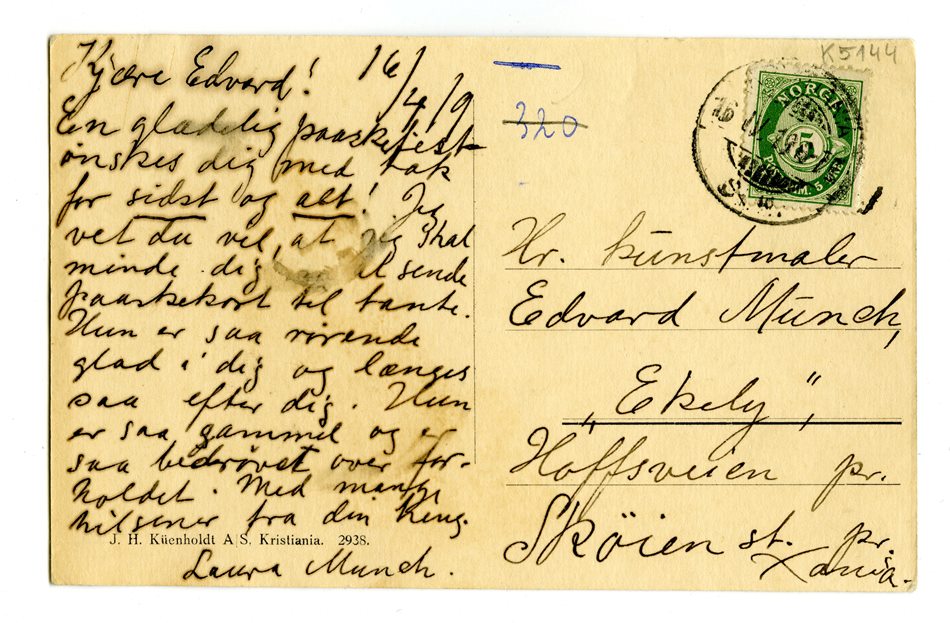 Kjære Edvard! 16/
/4/9
En glædelig paaskefest
ønskes dig med tak
for sidst og alt! Jeg
vet du vel, at jeg skal
minde dig, at sende
paaskekort til tante.
Hun er saa rørende
glad i dig og længes
saa efter dig. Hun
er saa gammel og er
saa bedrøvet over for-
holdet. Med mange
hilsener fra din heng.
Laura Munch.
J. H. Küenholdt A/S. Kristiania. 2938.
K5144
320
NORGE
5
16
Hr. kunstmaler
Edvard Munch,
„Ekely",
Hoffsveien pr.
Skøien st. pr.
Xania.